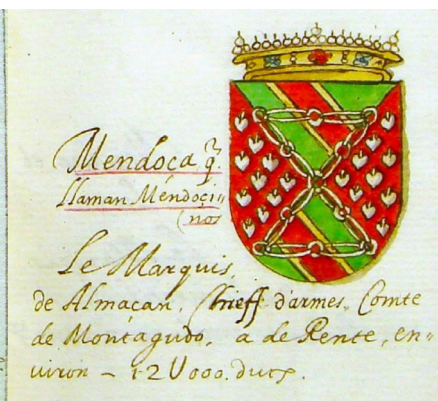 Mendoça q̃
llaman Mendoçi=
(nos
Le Marquis,
de Almaçan, Chieff d'armes, Comte
de Montagudo, a de Rente, en=
uiron – 12U000. ducs.